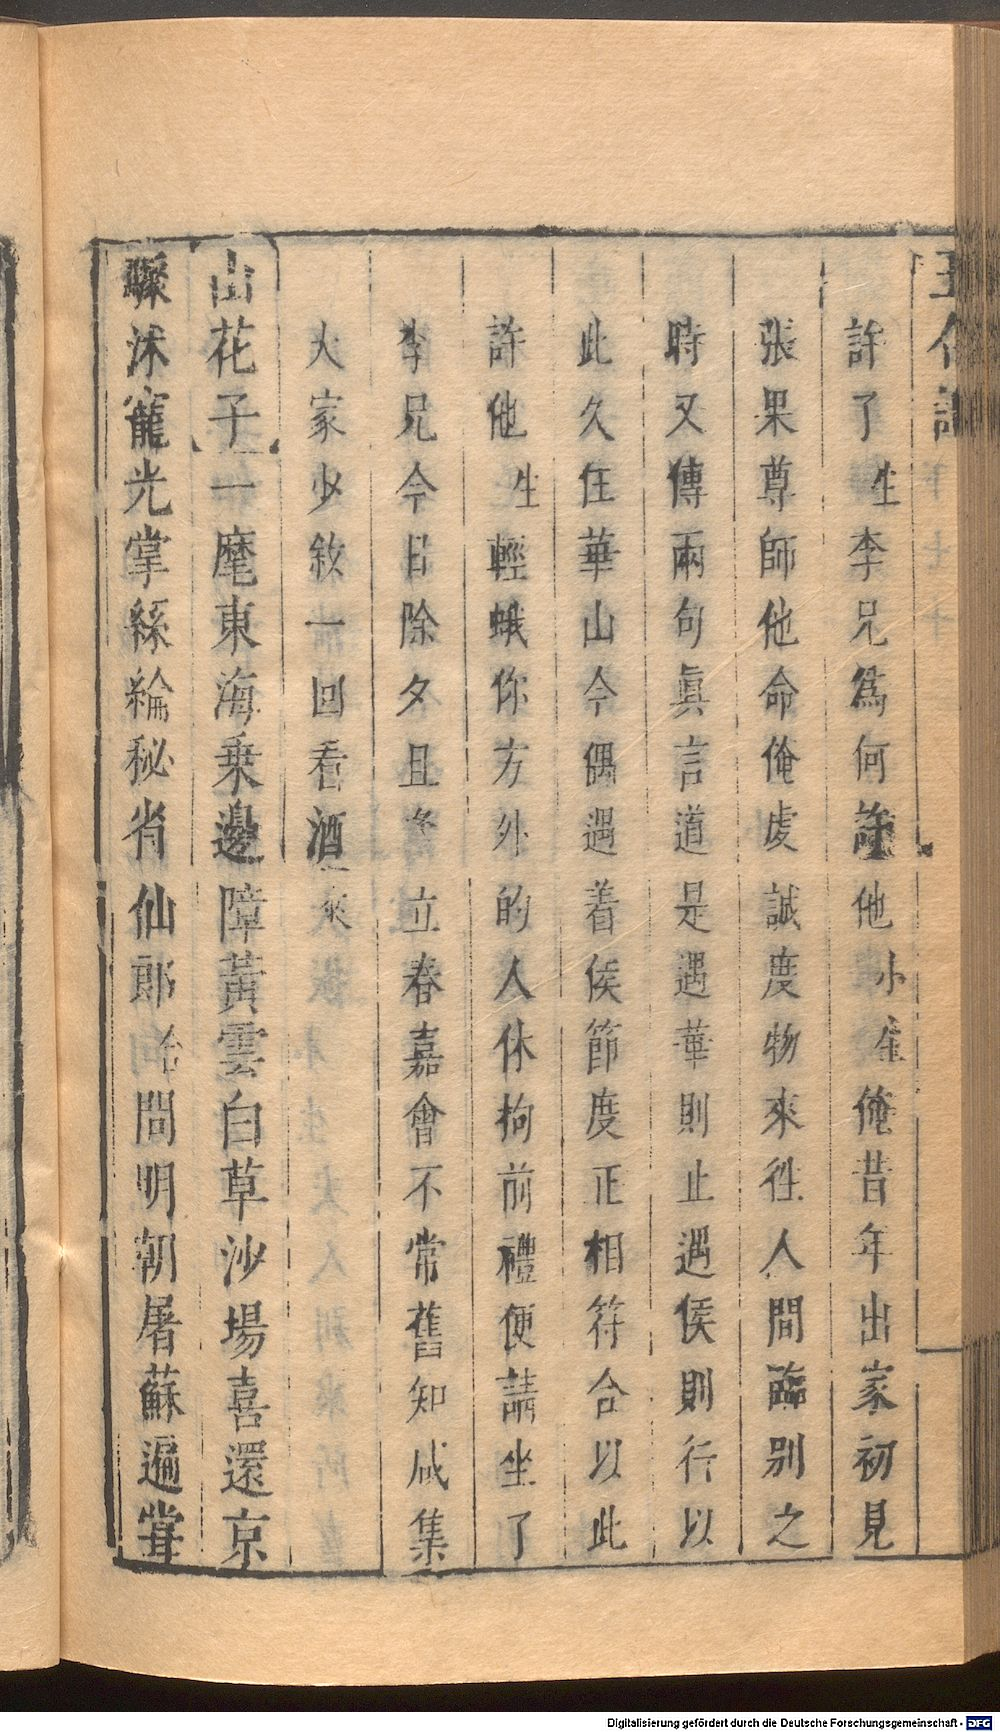 許了生李兄爲何許他小生俺昔年出家初見
張果尊師他命俺虔誠度物來徃人間臨別之
時又傳兩句眞言道是遇華則止遇侯則行以
此久住華山今偶遇着侯節度正相符合以此
許他生輕蛾你方外的人休拘前禮便請坐了
李兄今日除夕且逢立春嘉會不常舊知咸集
大家少敘一回看酒來
山花子一麾東海乗邊障黃雲白草沙場喜還京
驟沐寵光掌絲綸秘省仙郎合問明朝屠蘇遍嘗
Digitalisierung gefördert durch die Deutsche Forschungsgemeinschaft - DFG